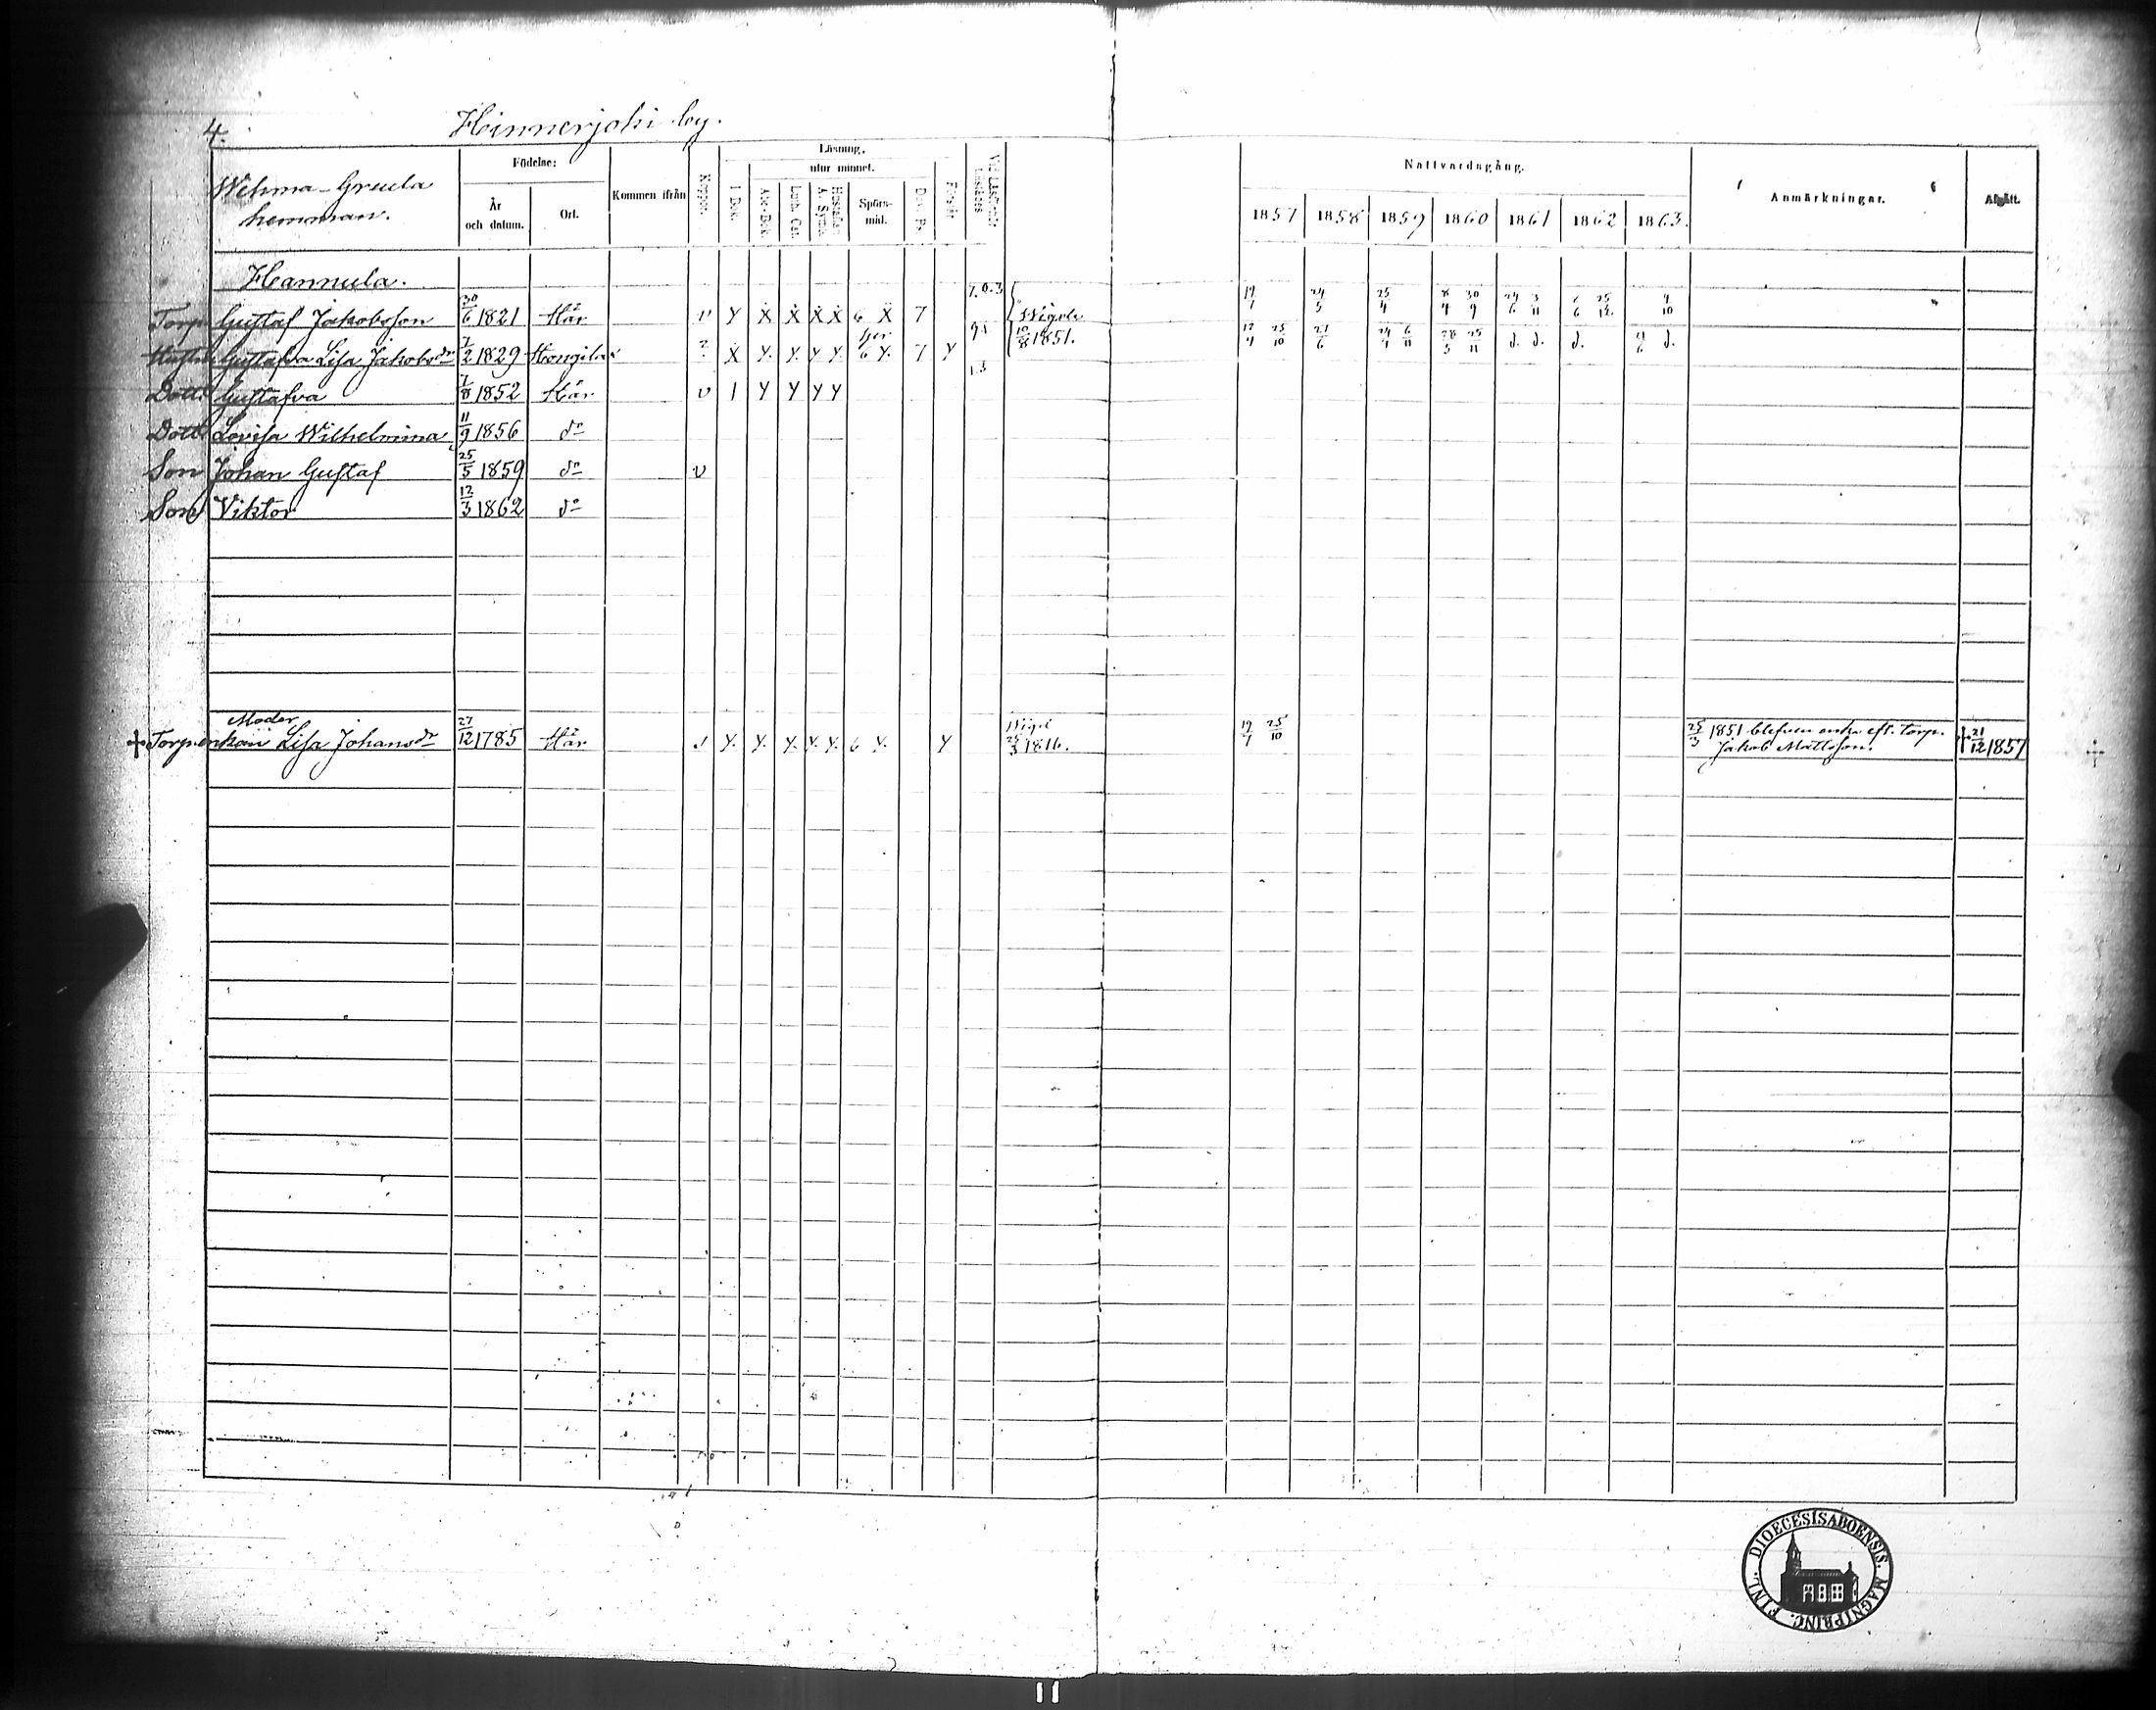 4.
Hinnerjoki by.
Wehma-Greula
hemman.
Födelse:
År
och datum.
Ort.
Kommen ifrån
Koppor.
Läsning.
utur minnet.
I Bok.
Abc-Bok.
Luth. Cat.
Hustaflan
A. Symb.
Spörs-
mål.
Dav. Ps.
Förstår
Nattvardsgång.
1857 1858 1859 1860 1861 1862 1863.
Anmärkningar.
Afgått.
Hannula.
Torp. Gustaf Jakobsson 30/6 1821 Här v Y X X X X 6 X 7 Wigde 19/7 24/5 25/4 8/4 30/9 24/6 3/11 6/6 25/12 4/10
Hustr. Gustafva Lisa Jakobsdr 7/2 1829 Hongilax X Y. Y. Y Y. 6 Y. 7 Y 10/8 1851. 12/4 25/10 21/6 24/4 6/11 28/3 25/11 d. d. d. 4/6 d.
Dottr Gustafva 7/8 1852 Här v 1 Y Y Y Y
Dott Lovisa Wilhelmina 11/9 1856 do
Son Johan Gustaf 25/5 1859 do v
Son Viktor 12/3 1862 do
Moder
† Torp.enkan Lisa Johansdr 27/12 1785 Här Y. Y. Y. Y. Y. 6 Y. Y Wigd 25/3 1816. 19/7 25/10 25/3 1851 blefven enka eft. torp. † 21/12 1857
Jakob Mattsson.
DIOECESIS ABOENSIS. MAGNI PRINC. FINL.
11